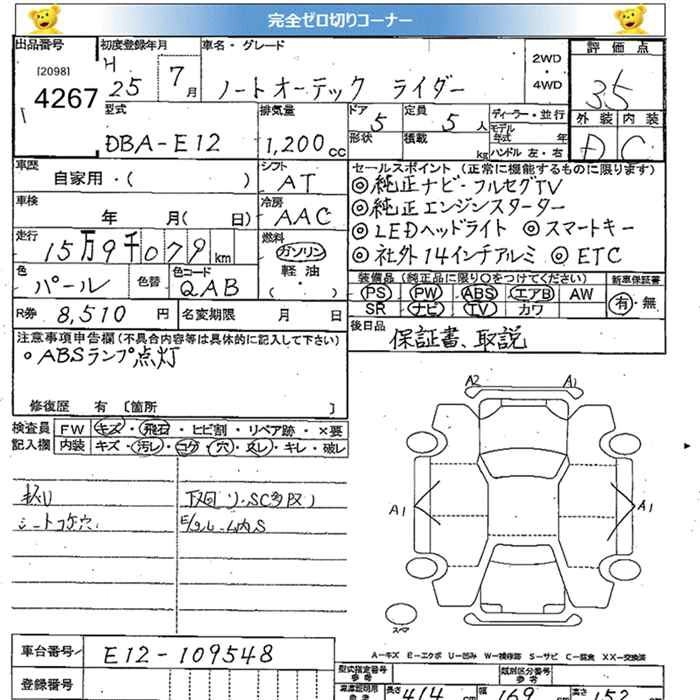 完全ゼロ切りコーナー
出品番号 初度登録年月 車名・グレード 評価点
[2098] 4267 H 25 7月 ノートオーテック ライダー 2WD・4WD 3.5
型式 排気量 ドア 定員 ディーラー・並行 外装 内装
DBA-E12 1,200cc 5 5人 モデル年式 年 D C
形状 積載 kg ハンドル 左・右
車歴 シフト セールスポイント (正常に機能するものに限ります)
自家用・( ) AT ◎純正ナビ・フルセグTV
車検 冷房 ◎純正エンジンスターター
年 月( 日) AAC ◎LEDヘッドライト ◎スマートキー
走行 燃料 ◎社外14インチアルミ ◎ETC
15万9千079km ガソリン
色 色替 色コード 軽油 装備品(純正品に限り○をつけてください) 新車保証書
パール QAB ・( ) PS PW ABS エアB AW 有・無
SR ナビ TV カワ
R券 8,510円 名変期限 月 日 後日品 保証書、取説
注意事項申告欄(不具合内容等は具体的に記入して下さい)
。ABSランプ点灯
修復歴 有 〔箇所 〕
検査員記入欄 FW キズ・飛石・ヒビ割・リペア跡・×要
内装 キズ・汚レ・コゲ・穴・スレ・キレ・破レ
A2 A1
シートコゲ穴
A1 A1
スペア
A-キズ E-エクボ U-凹み W-補修跡 S-サビ C-腐食 XX-交換済
車台番号 E12-109548
登録番号
型式指定番号 参考 類別区分番号 参考
長さ 414 cm 幅 169 cm 高さ 152